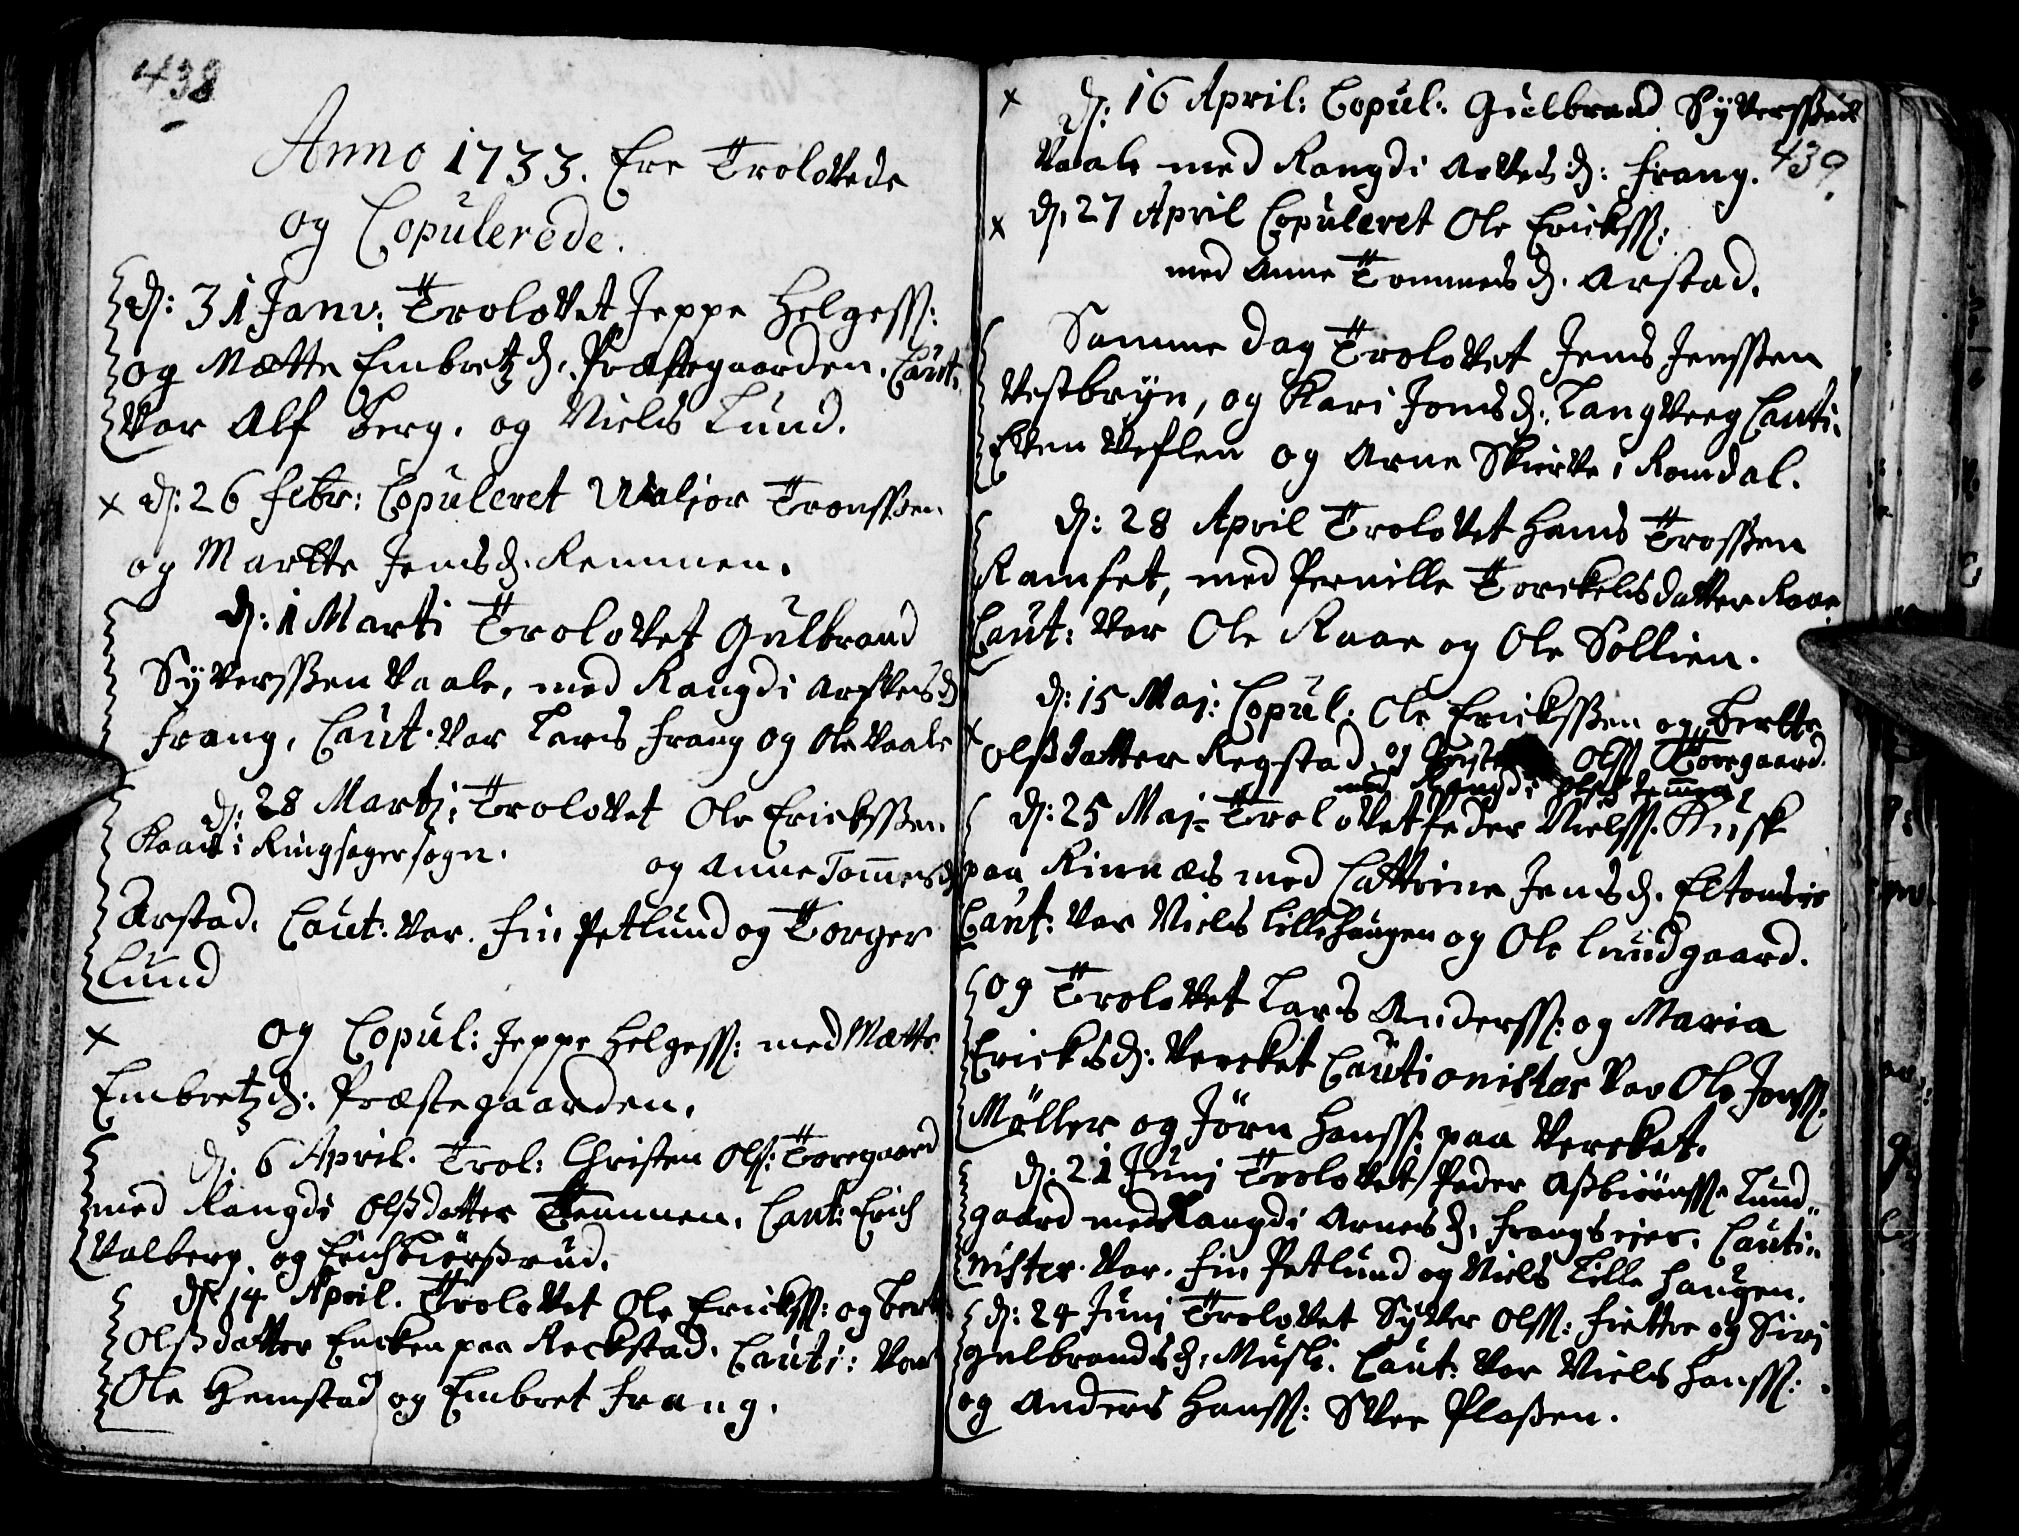 438
Anno 1733. Ere Trolovede
og Copulerede.
d: 31 Janv: Trolovet Jeppe Helgess:
og Mætte Embretzd. Præstegaarden. Caut:
var Alf Berg. og Niels Lund.
x d: 26 Febr: Copuleret Tronssen
og Martte Jensd. Remmen.
d: 1 Marti Trolovet Gulbrand
Syverssen Vaale, med Rangdi Arffvesd
Frang, Caut. var Lars Frang og Ole Vaale
d: 28 Martj: Trolovet Ole Erickssen
i Ringsager sogn. og Anne Tom̅esd
Arstad. Caut: var. Fin Petlund og Torger
Lund
x og Copul: Jeppe Helgess: med Mætte
Embretzd. Præstegaarden.
d. 6 April. Trol: Christen Ols: Toregaard
med Rangdi Olsdatter Temmen. Caut: Erich
Valberg. og Erich
d. 14 April. Trolovet Ole Ericks: og Bert
Olsdatter Encken paa Reckstad. Cauti: var
Ole Hemstad og Embret Frang.
x d: 16 April: Copul. Gulbrand Syverssen
439.
Vaale med Rangdi Arvesd: Frang.
x d. 27 April Copuleret Ole Ericks:
med Anne Tommesd. Arstad.
Samme dag Trolovet Jens Jenssen
Vestbryn, og Kari Jonsd: Langverg Cauti.
Even Veflen og Arne i Romdal.
d: 28 April Trolovet Hans Trossen
Ramset, med Pernille Torckelsdatter Raae
Caut: var Ole Raae og Ole Sollien.
x d: 15 Maj: Copul: Ole Erickssen og Bertte
Olsdatter Regstad. og Olss Toregaard
med Rangdi Temmen
d: 25 Maj: Trolovet Peder Nielss. Kusk
paa Rinnæs med Cattrine Jensd. Eltonseie
Caut: var Niels Lillehaugen og Ole Lundgaard.
og Trolovet Lars Anderss: og Maria
Ericksd: Vercket Cautionister var Ole Jonss.
Møller og Jørn Hanss: paa Vercket.
d: 21 Junj Trolovet Peder Asbiørnss. Lund-
gaard med Rangdi Arnesd. Frangs eier. Cauti-
nister. var. Fin Petlund og Niels Lille haugen.
d: 24 Junj Trolovet Syver Olss: Fiettre og Siri
Gulbrandsd: Musli. Caut: var Niels Hanss:
og Anders Hanss: Plassen.